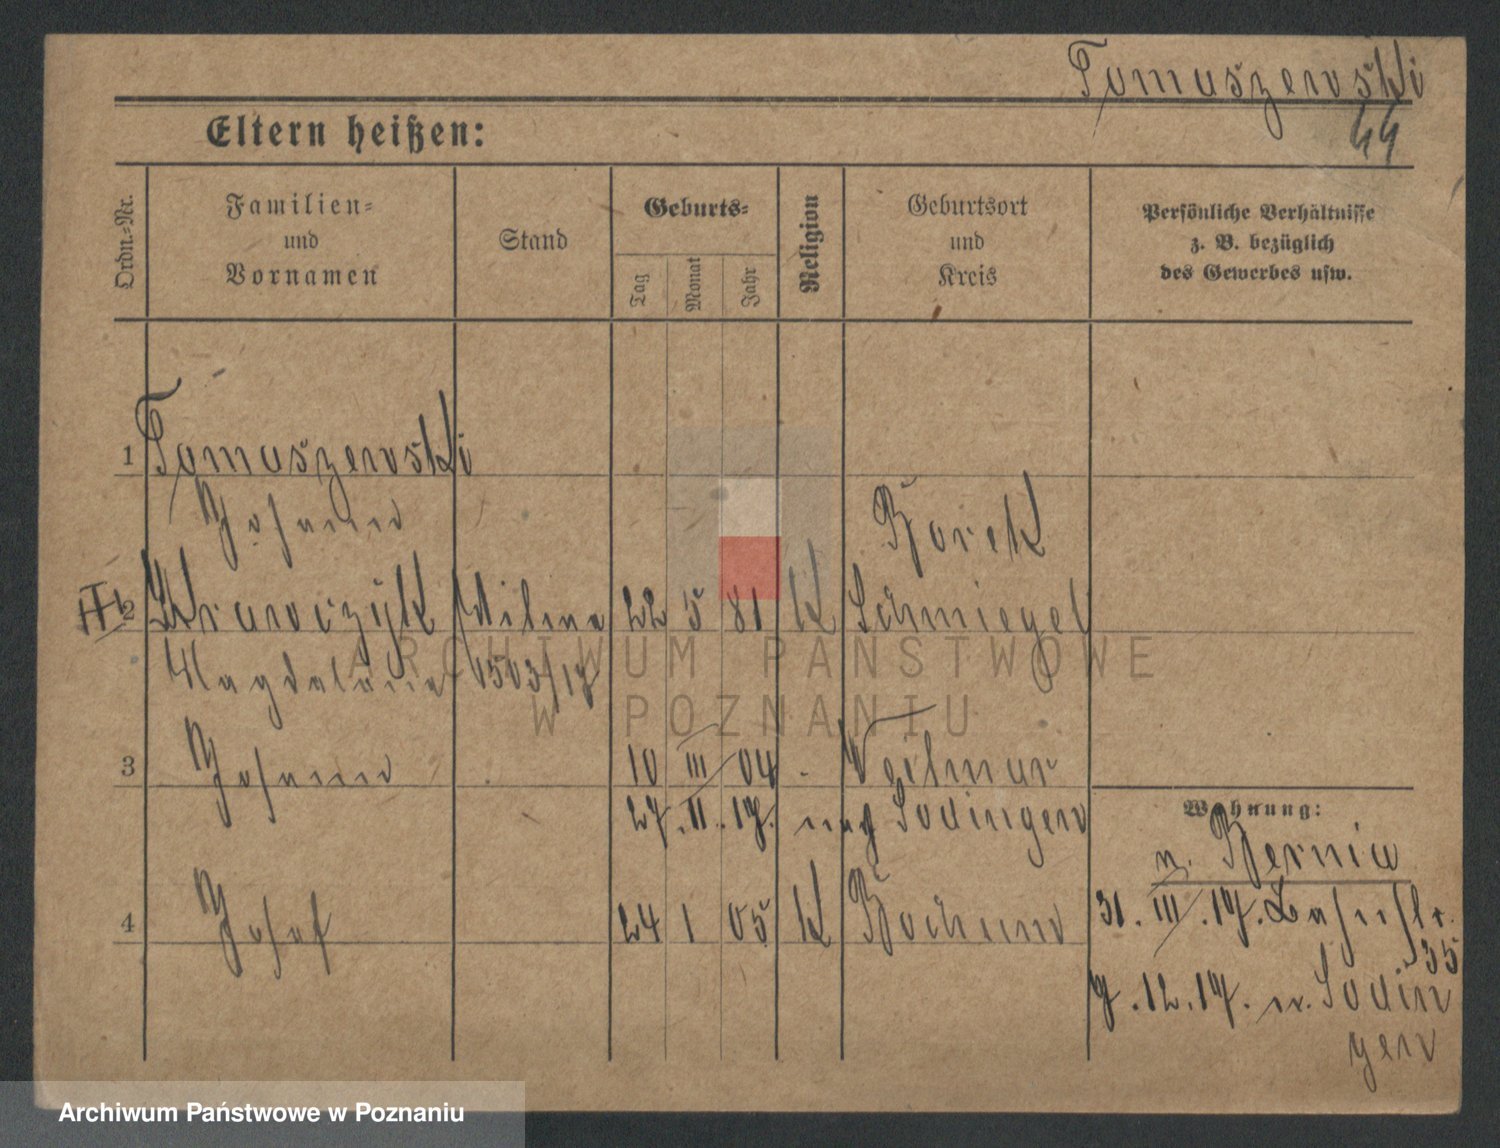 Tomaszewski
44
Eltern heißen:
Ordn.-Nr.
Familien-
und
Vornamen
Stand
Geburts-
Tag
Monat
Jahr
Religion
Geburtsort
und
Kreis
Persönliche Verhältnisse
z. B. bezüglich
des Gewerbes usw.
1 Tomaszewski
Johann Borek
2 Krawczyk Witwe 22 5 81 K Schmiegel
Magdalena 1503/17
3 Johann 10 III 04 - Weitmar
27. II. 17. nach Sodingen
Wohnung:
n. Bernia
4 Josef 24 1 05 K Bochum
31. III. 17. Bahnstr.
35
7.12.17. n. Sodin
gen
ARCHIWUM PAŃSTWOWE
W POZNANIU
Archiwum Państwowe w Poznaniu